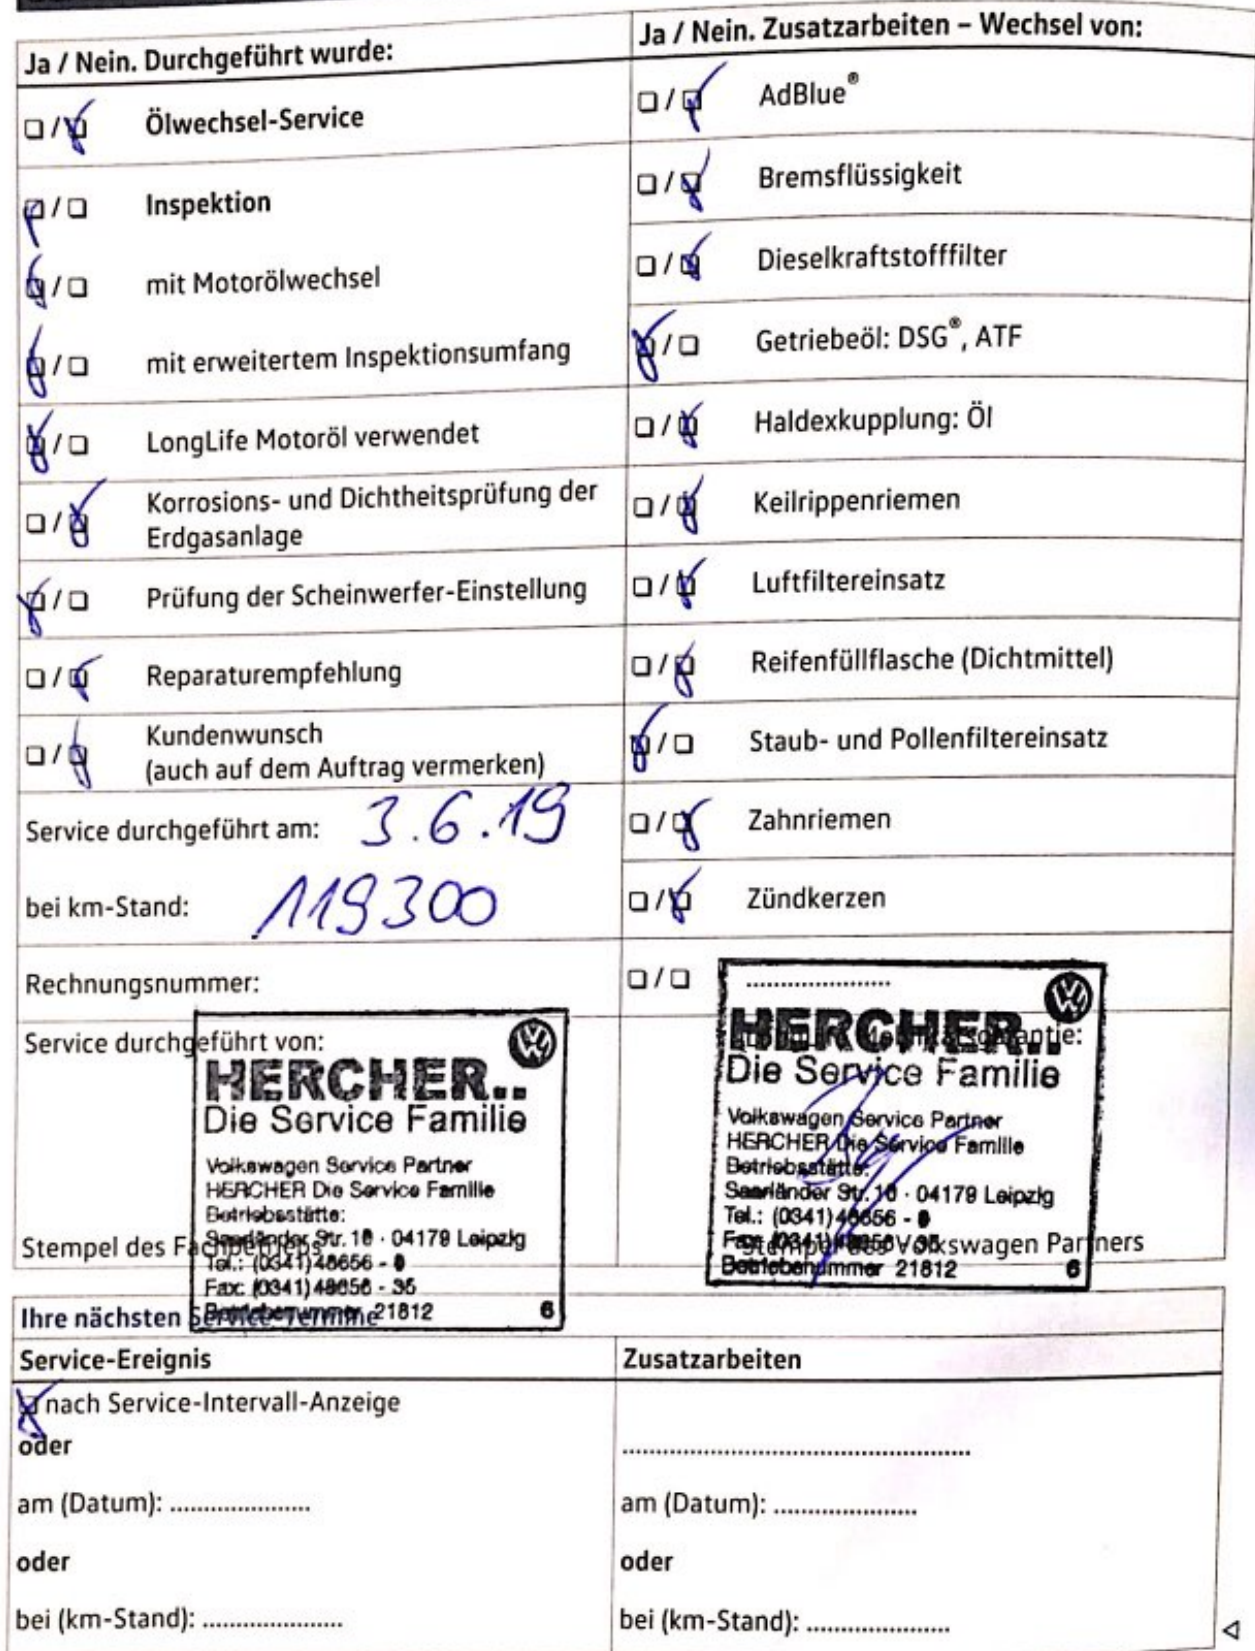 Ja / Nein. Durchgeführt wurde:
☐ / ☑ Ölwechsel-Service
☑ / ☐ Inspektion
☑ / ☐ mit Motorölwechsel
☑ / ☐ mit erweitertem Inspektionsumfang
☑ / ☐ LongLife Motoröl verwendet
☐ / ☑ Korrosions- und Dichtheitsprüfung der
Erdgasanlage
☑ / ☐ Prüfung der Scheinwerfer-Einstellung
☐ / ☑ Reparaturempfehlung
☐ / ☑ Kundenwunsch
(auch auf dem Auftrag vermerken)
Service durchgeführt am: 3.6.19
bei km-Stand: 119300
Rechnungsnummer:
Service durchgeführt von:
HERCHER..
Die Service Familie
Volkswagen Service Partner
HERCHER Die Service Familie
Betriebsstätte:
Saarländer Str. 10 · 04179 Leipzig
Tel.: (0341) 48656 - 0
Fax: (0341) 48656 - 35
Betriebsnummer 21812 6
Stempel des Fachbetriebs
Ja / Nein. Zusatzarbeiten – Wechsel von:
☐ / ☑ AdBlue®
☐ / ☑ Bremsflüssigkeit
☐ / ☑ Dieselkraftstofffilter
☑ / ☐ Getriebeöl: DSG®, ATF
☐ / ☑ Haldexkupplung: Öl
☐ / ☑ Keilrippenriemen
☐ / ☑ Luftfiltereinsatz
☐ / ☑ Reifenfüllflasche (Dichtmittel)
☑ / ☐ Staub- und Pollenfiltereinsatz
☐ / ☑ Zahnriemen
☐ / ☑ Zündkerzen
☐ / ☐ .....................
HERCHER..
Die Service Familie
Volkswagen Service Partner
HERCHER Die Service Familie
Betriebsstätte:
Saarländer Str. 10 · 04179 Leipzig
Tel.: (0341) 48656 - 0
Fax: (0341) 48656 - 35
Betriebsnummer 21812 6
Stempel des Volkswagen Partners
Ihre nächsten Service-Termine
Service-Ereignis
☑ nach Service-Intervall-Anzeige
oder
am (Datum): .....................
oder
bei (km-Stand): .....................
Zusatzarbeiten
.....................
am (Datum): .....................
oder
bei (km-Stand): .....................